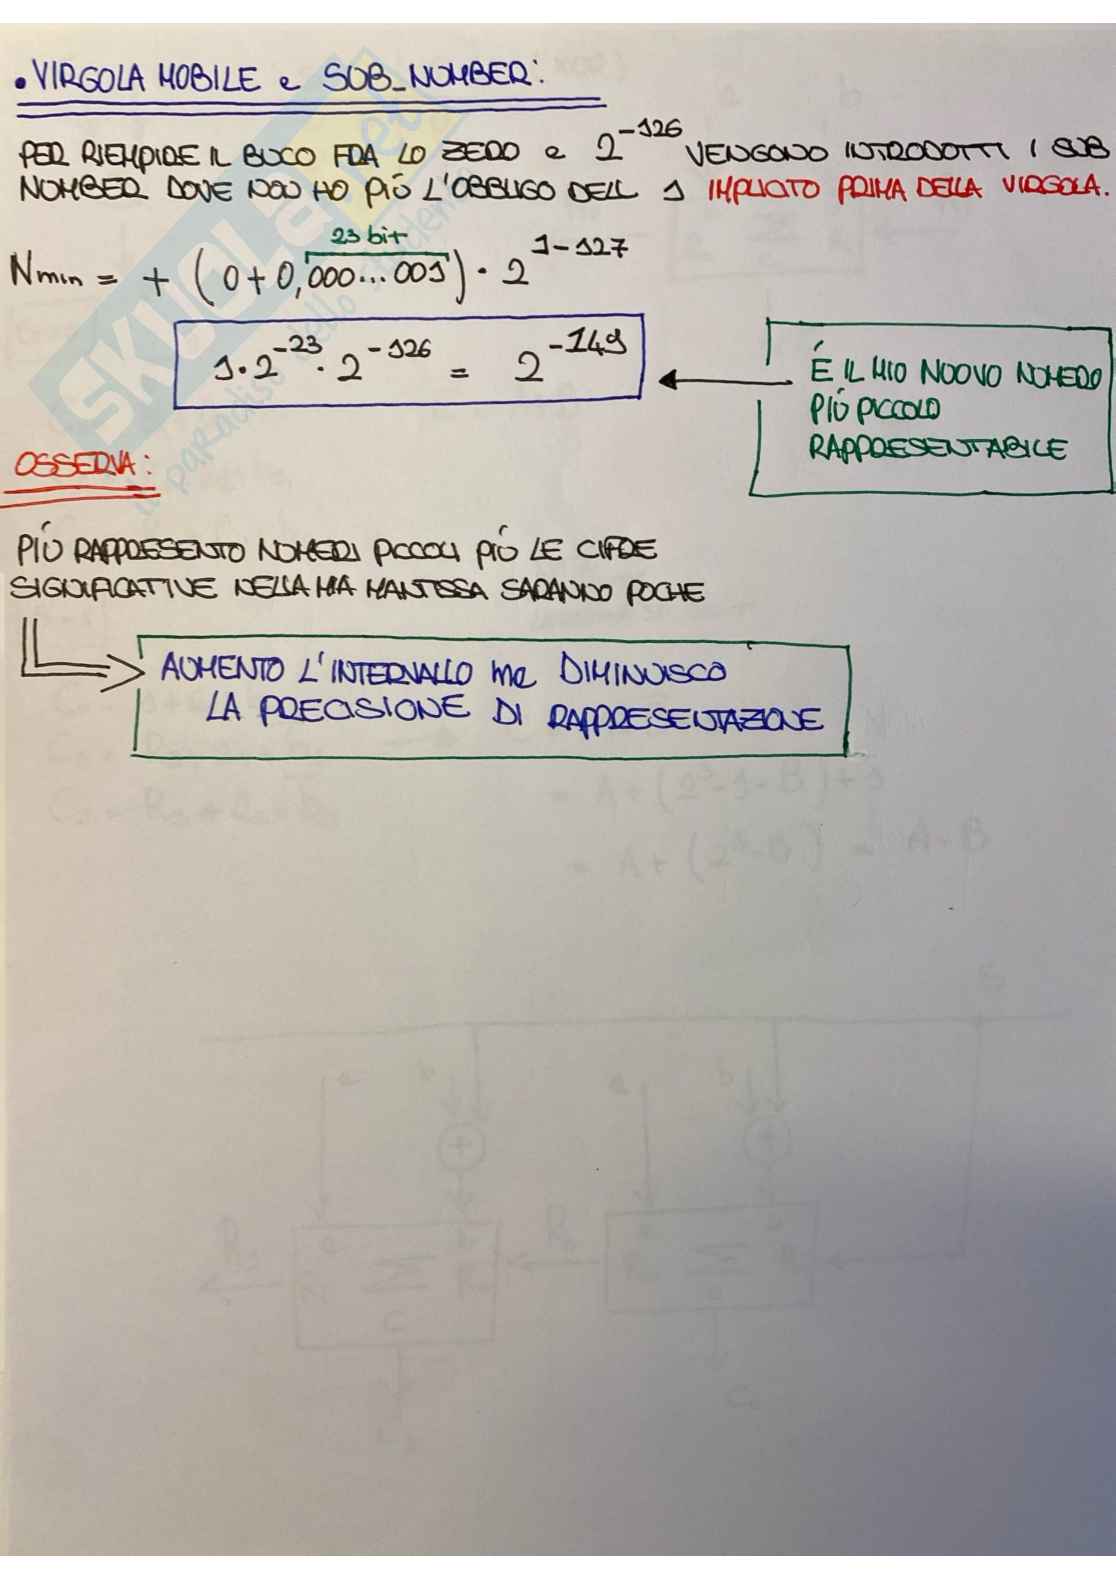 • VIRGOLA MOBILE e SUB_NUMBER:
PER RIEMPIRE IL BUCO FRA LO ZERO e 2^-126 VENGONO INTRODOTTI I SUB
NUMBER DOVE NON HO PIÚ L'OBBLIGO DELL 1 IMPLICITO PRIMA DELLA VIRGOLA.
23 bit
Nmin = + (0+0,000...001) · 2^1-127
1·2^-23 · 2^-126 = 2^-149
É IL MIO NUOVO NUMERO
PIÚ PICCOLO
RAPPRESENTABILE
OSSERVA:
PIÚ RAPPRESENTO NUMERI PICCOLI PIÚ LE CIFRE
SIGNIFICATIVE NELLA MIA MANTISSA SARANNO POCHE
AUMENTO L'INTERVALLO ma DIMINUISCO
LA PRECISIONE DI RAPPRESENTAZIONE
= A+(2^3-1-B)+1
= A+(2^3-B) = A-B